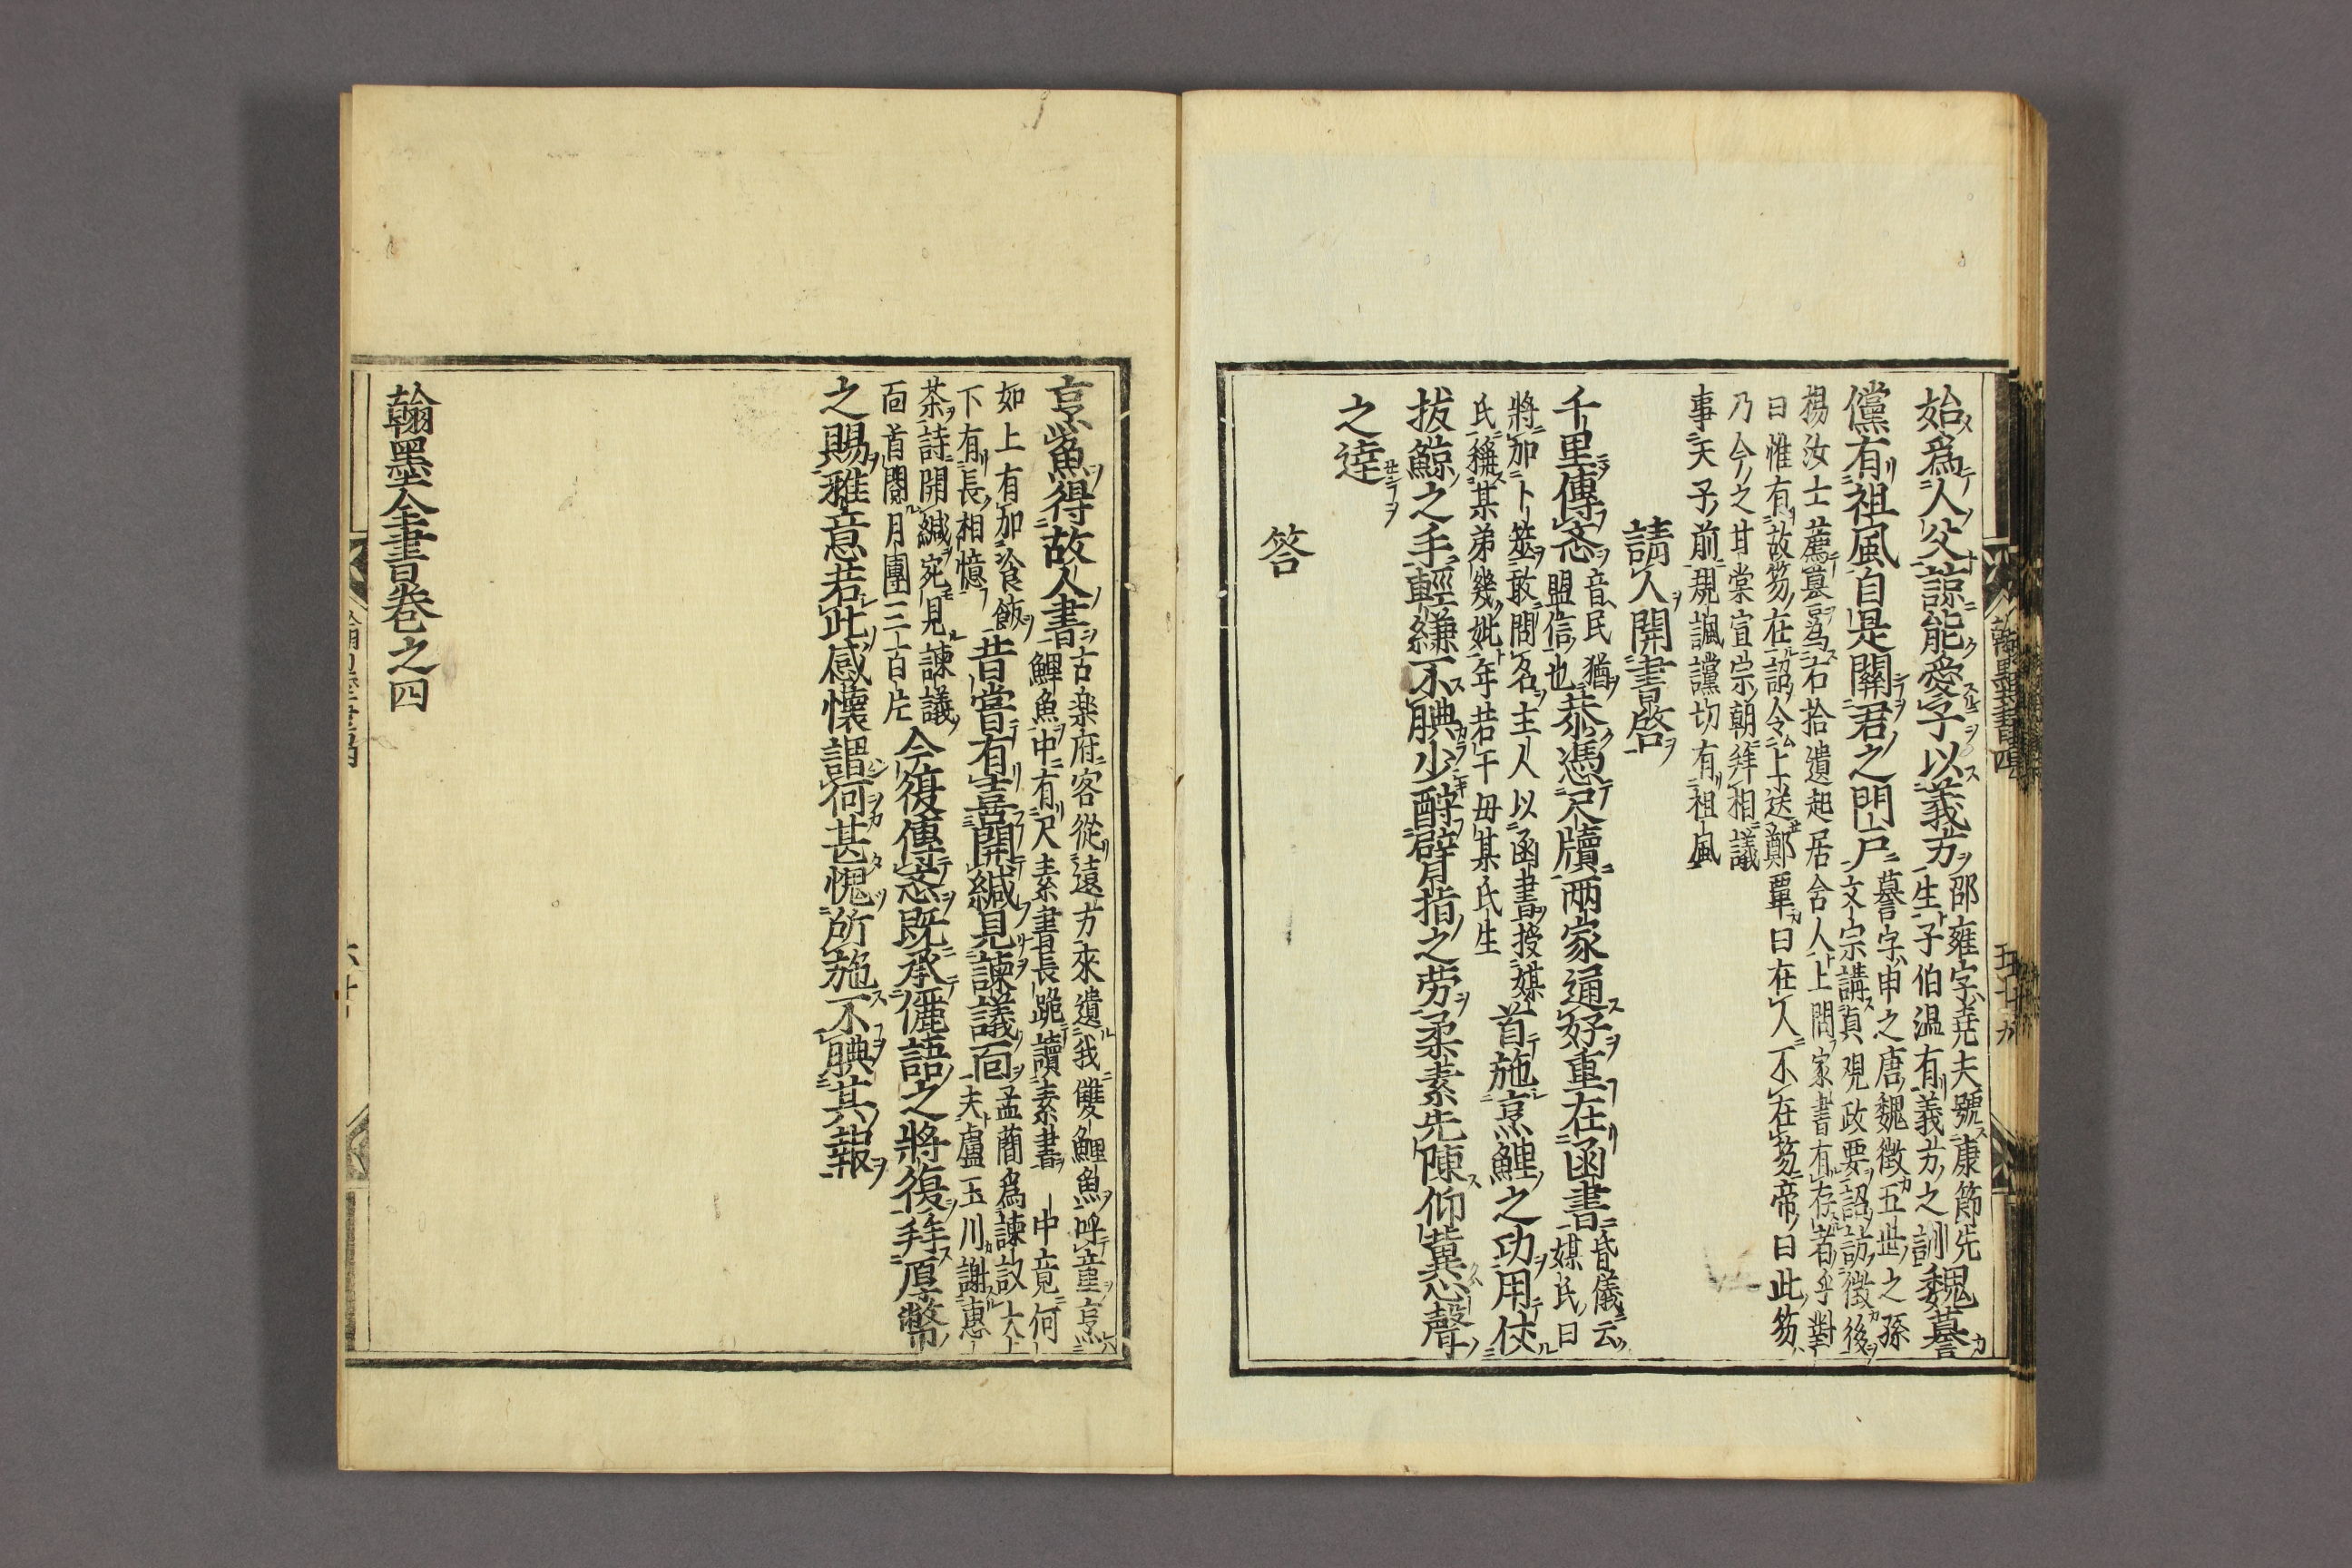 始爲人父諒能愛子以義方 邵雍字堯夫號康節先
生生子伯温有義方之訓 魏謩
儻有祖風自是關君之門戸 謩字申之唐魏徵五世之孫
文宗講貞觀政要詔訪徵後
楊汝士薦謩爲右拾遺起居舍人上問家書有存者乎對
曰惟有故笏在詔令上送鄭覃曰在人不在笏帝曰此笏
乃今之甘棠宣宗朝拜相議
事天子前規諷讜切有祖風
請人開書啓
千里傳忞 音民猶
盟信也 恭憑尺牘兩家通好重在函書 昏儀云
媒氏曰
將加卜筮敢問名主人以函書授媒
氏稱某弟幾妣年若干毋某氏生 首施烹鯉之功用伏
拔鯨之手輕縑不腆少酹臂指之勞柔素先陳仰冀惡聲
之達
答
烹魚得故人書 古楽府客從遠方來遺我雙鯉魚呼童烹
鯉魚中有尺素書長跪讀素書中竟何
如上有加飡飯
下有長相憶 昔嘗有喜開緘見諫議面 孟蕳爲諫議大
夫盧玉川謝惠
茶詩開緘宛見諫議
面首閱月團三百片 今復傳忞既承儷語之將復拜厚幣
之賜雅意若此感懷謂何甚愧所施不腆其報
翰墨全書卷之四